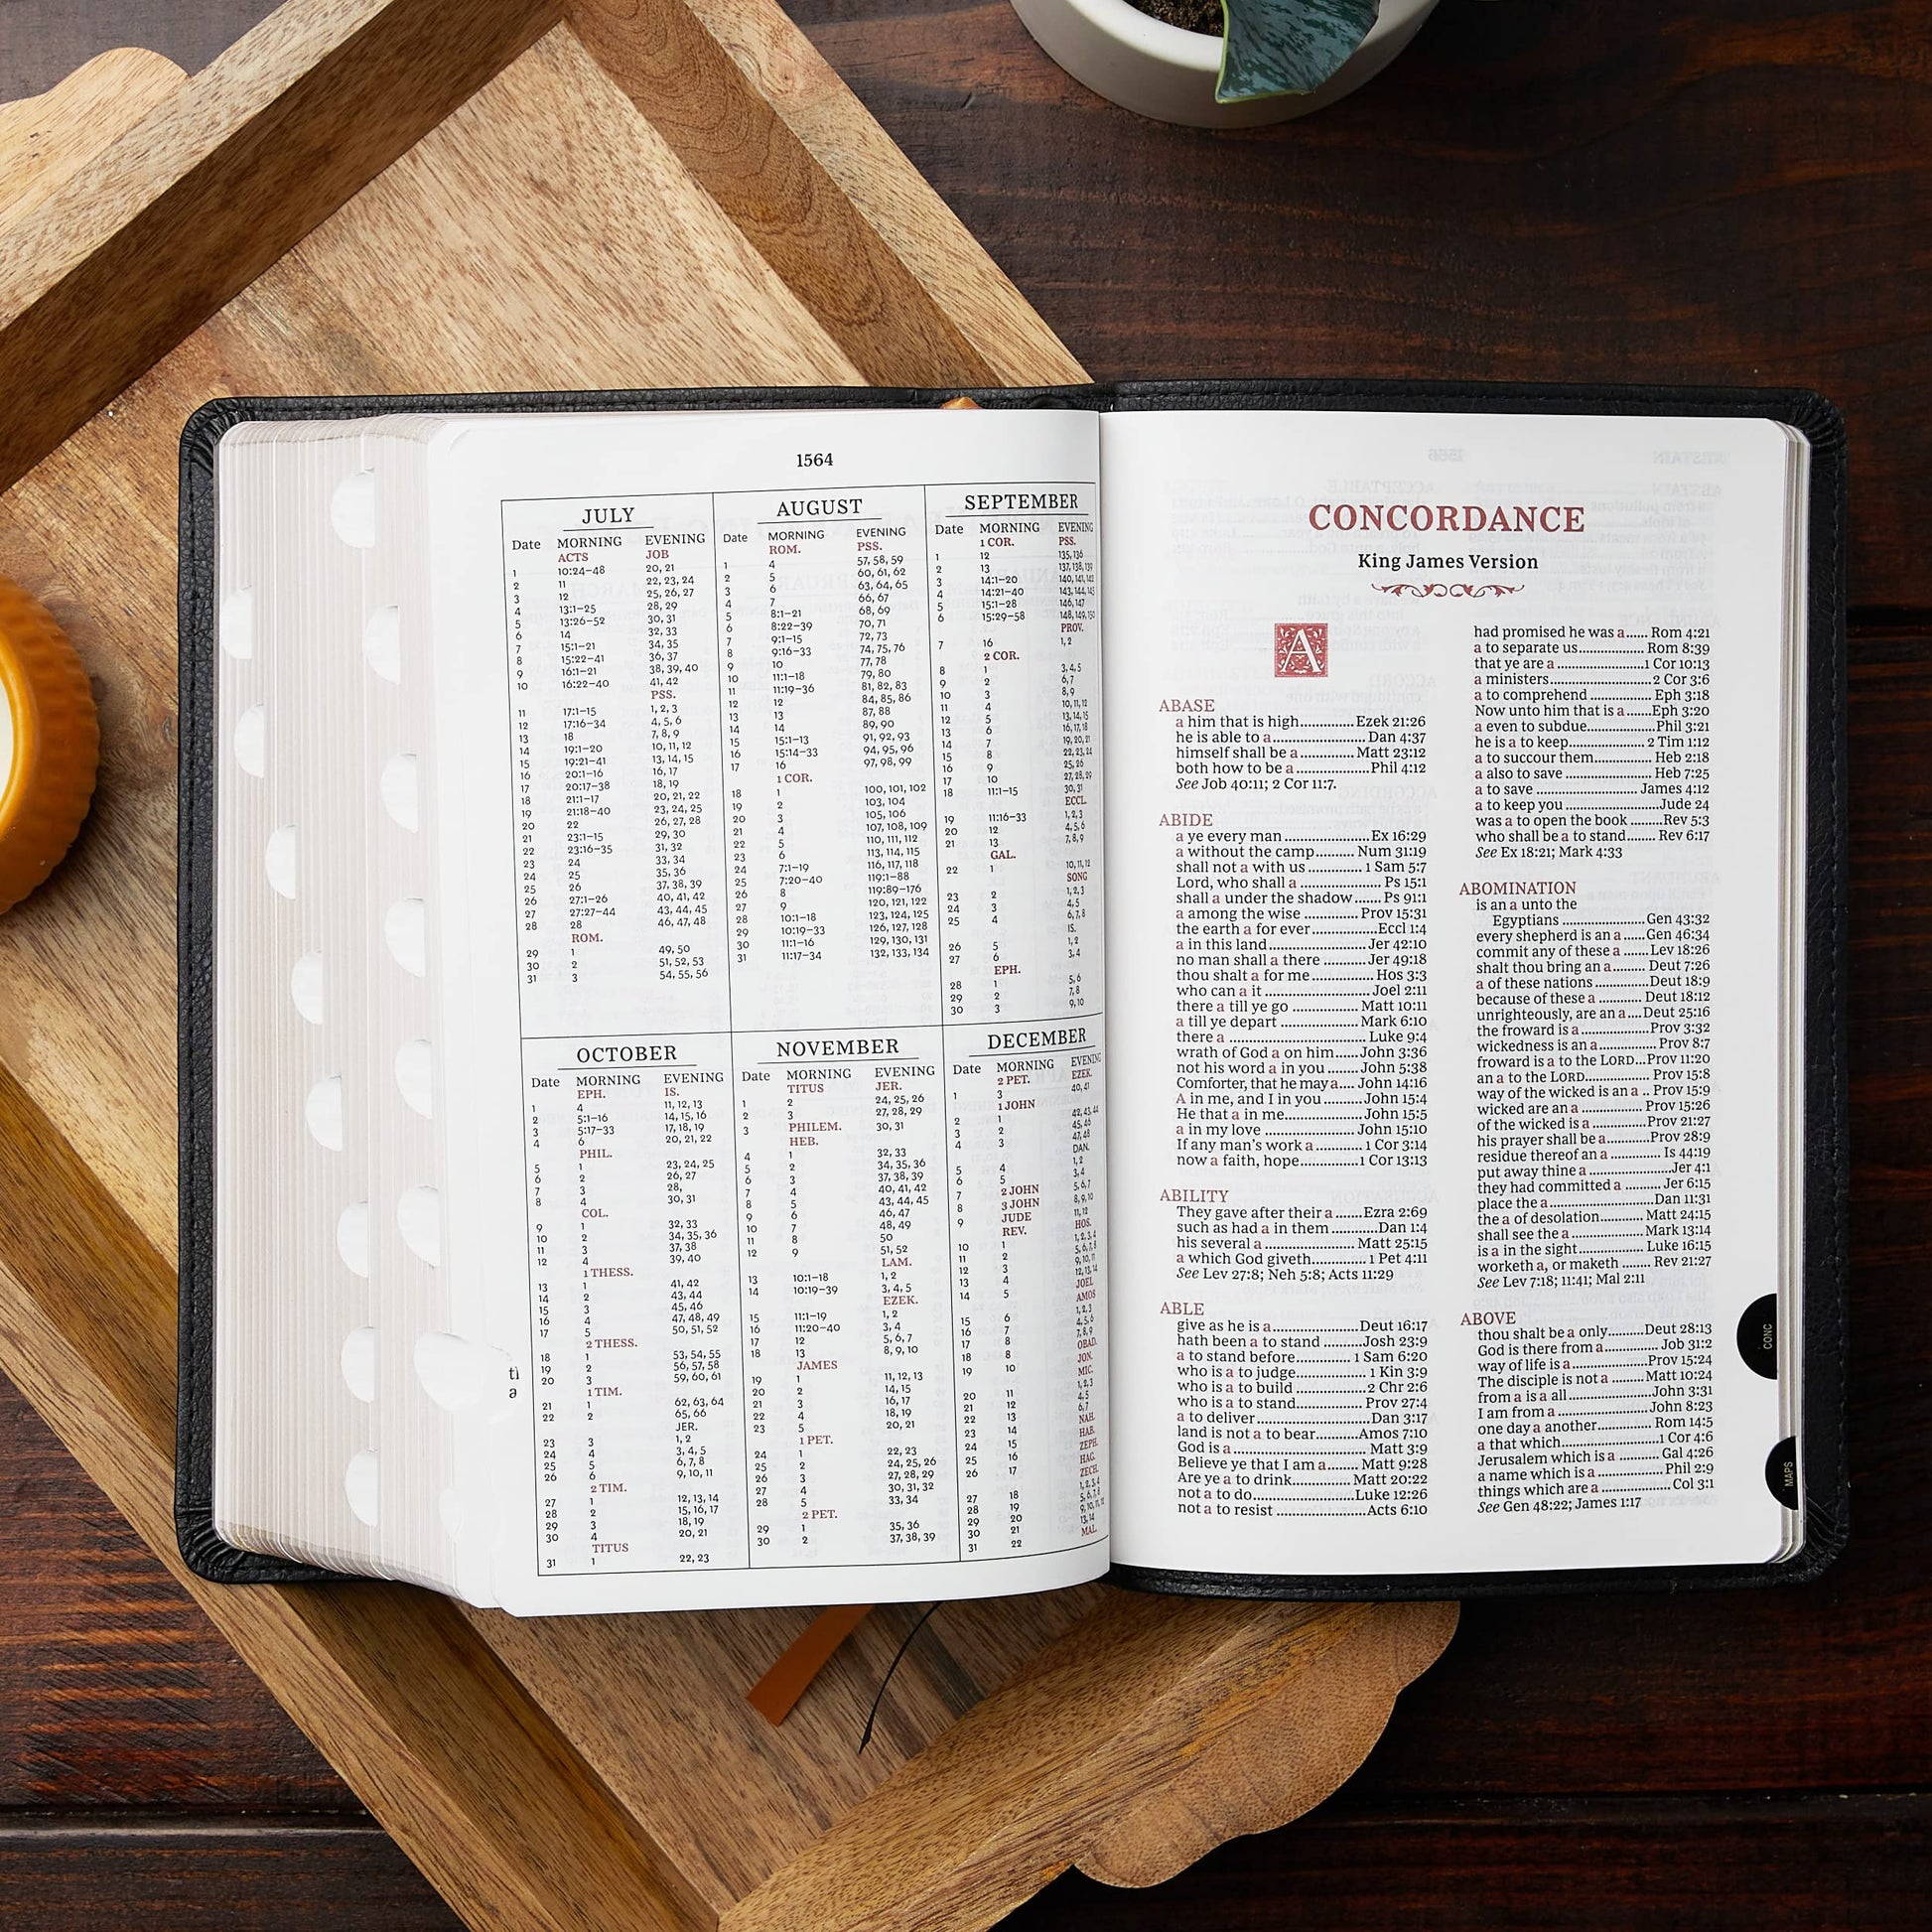 1564
JULY
Date MORNING EVENING
ACTS JOB
1 10:24–48 20, 21
2 11 22, 23, 24
3 12 25, 26, 27
4 13:1–25 28, 29
5 13:26–52 30, 31
6 14 32, 33
7 15:1–21 34, 35
8 15:22–41 36, 37
9 16:1–21 38, 39, 40
10 16:22–40 41, 42
PSS.
11 17:1–15 1, 2, 3
12 17:16–34 4, 5, 6
13 18 7, 8, 9
14 19:1–20 10, 11, 12
15 19:21–41 13, 14, 15
16 20:1–16 16, 17
17 20:17–38 18, 19
18 21:1–17 20, 21, 22
19 21:18–40 23, 24, 25
20 22 26, 27, 28
21 23:1–15 29, 30
22 23:16–35 31, 32
23 24 33, 34
24 25 35, 36
25 26 37, 38, 39
26 27:1–26 40, 41, 42
27 27:27–44 43, 44, 45
28 28 46, 47, 48
ROM.
29 1 49, 50
30 2 51, 52, 53
31 3 54, 55, 56
AUGUST
Date MORNING EVENING
ROM. PSS.
1 4 57, 58, 59
2 5 60, 61, 62
3 6 63, 64, 65
4 7 66, 67
5 8:1–21 68, 69
6 8:22–39 70, 71
7 9:1–15 72, 73
8 9:16–33 74, 75, 76
9 10 77, 78
10 11:1–18 79, 80
11 11:19–36 81, 82, 83
12 12 84, 85, 86
13 13 87, 88
14 14 89, 90
15 15:1–13 91, 92, 93
16 15:14–33 94, 95, 96
17 16 97, 98, 99
1 COR.
18 1 100, 101, 102
19 2 103, 104
20 3 105, 106
21 4 107, 108, 109
22 5 110, 111, 112
23 6 113, 114, 115
24 7:1–19 116, 117, 118
25 7:20–40 119:1–88
26 8 119:89–176
27 9 120, 121, 122
28 10:1–18 123, 124, 125
29 10:19–33 126, 127, 128
30 11:1–16 129, 130, 131
31 11:17–34 132, 133, 134
SEPTEMBER
Date MORNING EVENING
1 COR. PSS.
1 12 135, 136
2 13 137, 138, 139
3 14:1–20 140, 141, 142
4 14:21–40 143, 144, 145
5 15:1–28 146, 147
6 15:29–58 148, 149, 150
PROV.
7 16 1, 2
2 COR.
8 1 3, 4, 5
9 2 6, 7
10 3 8, 9
11 4 10, 11, 12
12 5 13, 14, 15
13 6 16, 17, 18
14 7 19, 20, 21
15 8 22, 23, 24
16 9 25, 26
17 10 27, 28, 29
18 11:1–15 30, 31
ECCL.
19 11:16–33 1, 2, 3
20 12 4, 5, 6
21 13 7, 8, 9
GAL.
22 1 10, 11, 12
SONG
23 2 1, 2, 3
24 3 4, 5
25 4 6, 7, 8
IS.
26 5 1, 2
27 6 3, 4
EPH.
28 1 5, 6
29 2 7, 8
30 3 9, 10
OCTOBER
Date MORNING EVENING
EPH. IS.
1 4 11, 12, 13
2 5:1–16 14, 15, 16
3 5:17–33 17, 18, 19
4 6 20, 21, 22
PHIL.
5 1 23, 24, 25
6 2 26, 27
7 3 28,
8 4 30, 31
COL.
9 1 32, 33
10 2 34, 35, 36
11 3 37, 38
12 4 39, 40
1 THESS.
13 1 41, 42
14 2 43, 44
15 3 45, 46
16 4 47, 48, 49
17 5 50, 51, 52
2 THESS.
18 1 53, 54, 55
19 2 56, 57, 58
20 3 59, 60, 61
1 TIM.
21 1 62, 63, 64
22 2 65, 66
JER.
23 3 1, 2
24 4 3, 4, 5
25 5 6, 7, 8
26 6 9, 10, 11
2 TIM.
27 1 12, 13, 14
28 2 15, 16, 17
29 3 18, 19
30 4 20, 21
TITUS
31 1 22, 23
NOVEMBER
Date MORNING EVENING
TITUS JER.
1 2 24, 25, 26
2 3 27, 28, 29
3 PHILEM. 30, 31
HEB.
4 1 32, 33
5 2 34, 35, 36
6 3 37, 38, 39
7 4 40, 41, 42
8 5 43, 44, 45
9 6 46, 47
10 7 48, 49
11 8 50
12 9 51, 52
LAM.
13 10:1–18 1, 2
14 10:19–39 3, 4, 5
EZEK.
15 11:1–19 1, 2
16 11:20–40 3, 4
17 12 5, 6, 7
18 13 8, 9, 10
JAMES
19 1 11, 12, 13
20 2 14, 15
21 3 16, 17
22 4 18, 19
23 5 20, 21
1 PET.
24 1 22, 23
25 2 24, 25, 26
26 3 27, 28, 29
27 4 30, 31, 32
28 5 33, 34
2 PET.
29 1 35, 36
30 2 37, 38, 39
DECEMBER
Date MORNING EVENING
2 PET. EZEK.
1 3 40, 41
1 JOHN
2 1 42, 43, 44
3 2 45, 46
4 3 47, 48
DAN.
5 4 1, 2
6 5 3, 4
7 2 JOHN 5, 6, 7
8 3 JOHN 8, 9, 10
9 JUDE 11, 12
REV. HOS.
10 1 1, 2, 3, 4
11 2 5, 6, 7, 8
12 3 9, 10, 11
13 4 12, 13, 14
JOEL
14 5
AMOS
15 6 1, 2, 3
16 7 4, 5, 6
17 8 7, 8, 9
18 8 OBAD.
JON.
19 10 MIC.
1, 2, 3
20 11 4, 5
21 12 6, 7
22 13 NAH.
23 14 HAB.
24 15 ZEPH.
25 16 HAG.
26 17 ZECH.
1, 2, 3, 4
27 18 5, 6, 7, 8
28 19 9, 10, 11, 12
29 20 13, 14
30 21 MAL.
31 22
ti
a
CONCORDANCE
King James Version
A
ABASE
a him that is high..............Ezek 21:26
he is able to a........................Dan 4:37
himself shall be a.............Matt 23:12
both how to be a...................Phil 4:12
See Job 40:11; 2 Cor 11:7.
ABIDE
a ye every man......................Ex 16:29
a without the camp..........Num 31:19
shall not a with us..............1 Sam 5:7
Lord, who shall a....................Ps 15:1
shall a under the shadow.......Ps 91:1
a among the wise..............Prov 15:31
the earth a for ever.................Eccl 1:4
a in this land.........................Jer 42:10
no man shall a there............Jer 49:18
thou shalt a for me.................Hos 3:3
who can a it...........................Joel 2:11
there a till ye go.................Matt 10:11
a till ye depart....................Mark 6:10
there a....................................Luke 9:4
wrath of God a on him......John 3:36
not his word a in you........John 5:38
Comforter, that he may a....John 14:16
A in me, and I in you.........John 15:4
He that a in me...................John 15:5
a in my love........................John 15:10
If any man's work a............1 Cor 3:14
now a faith, hope...............1 Cor 13:13
ABILITY
They gave after their a......Ezra 2:69
such as had a in them............Dan 1:4
his several a.......................Matt 25:15
a which God giveth.............1 Pet 4:11
See Lev 27:8; Neh 5:8; Acts 11:29
ABLE
give as he is a.....................Deut 16:17
hath been a to stand..........Josh 23:9
a to stand before..............1 Sam 6:20
who is a to judge...................1 Kin 3:9
who is a to build...................2 Chr 2:6
who is a to stand................Prov 27:4
a to deliver............................Dan 3:17
land is not a to bear...........Amos 7:10
God is a..................................Matt 3:9
Believe ye that I am a........Matt 9:28
Are ye a to drink..............Matt 20:22
not a to do.........................Luke 12:26
not a to resist.......................Acts 6:10
had promised he was a......Rom 4:21
a to separate us..................Rom 8:39
that ye are a.......................1 Cor 10:13
a ministers............................2 Cor 3:6
a to comprehend.................Eph 3:18
Now unto him that is a......Eph 3:20
a even to subdue..................Phil 3:21
he is a to keep...................2 Tim 1:12
a to succour them................Heb 2:18
a also to save.......................Heb 7:25
a to save..............................James 4:12
a to keep you.........................Jude 24
was a to open the book.........Rev 5:3
who shall be a to stand........Rev 6:17
See Ex 18:21; Mark 4:33
ABOMINATION
is an a unto the
Egyptians.......................Gen 43:32
every shepherd is an a.....Gen 46:34
commit any of these a......Lev 18:26
shalt thou bring an a........Deut 7:26
a of these nations..............Deut 18:9
because of these a............Deut 18:12
unrighteously, are an a....Deut 25:16
the froward is a...................Prov 3:32
wickedness is an a...............Prov 8:7
froward is a to the LORD...Prov 11:20
an a to the LORD..................Prov 15:8
way of the wicked is an a..Prov 15:9
wicked are an a................Prov 15:26
of the wicked is a...............Prov 21:27
his prayer shall be a...........Prov 28:9
residue thereof an a..............Is 44:19
put away thine a.....................Jer 4:1
they had committed a..........Jer 6:15
place the a............................Dan 11:31
the a of desolation............Matt 24:15
shall see the a...................Mark 13:14
is a in the sight..................Luke 16:15
worketh a, or maketh........Rev 21:27
See Lev 7:18; 11:41; Mal 2:11
ABOVE
thou shalt be a only.........Deut 28:13
God is there from a..............Job 31:2
way of life is a....................Prov 15:24
The disciple is not a.........Matt 10:24
from a is a all......................John 3:31
I am from a..........................John 8:23
one day a another................Rom 14:5
a that which..........................1 Cor 4:6
Jerusalem which is a...........Gal 4:26
a name which is a.................Phil 2:9
things which are a..................Col 3:1
See Gen 48:22; James 1:17
CONC
MAPS